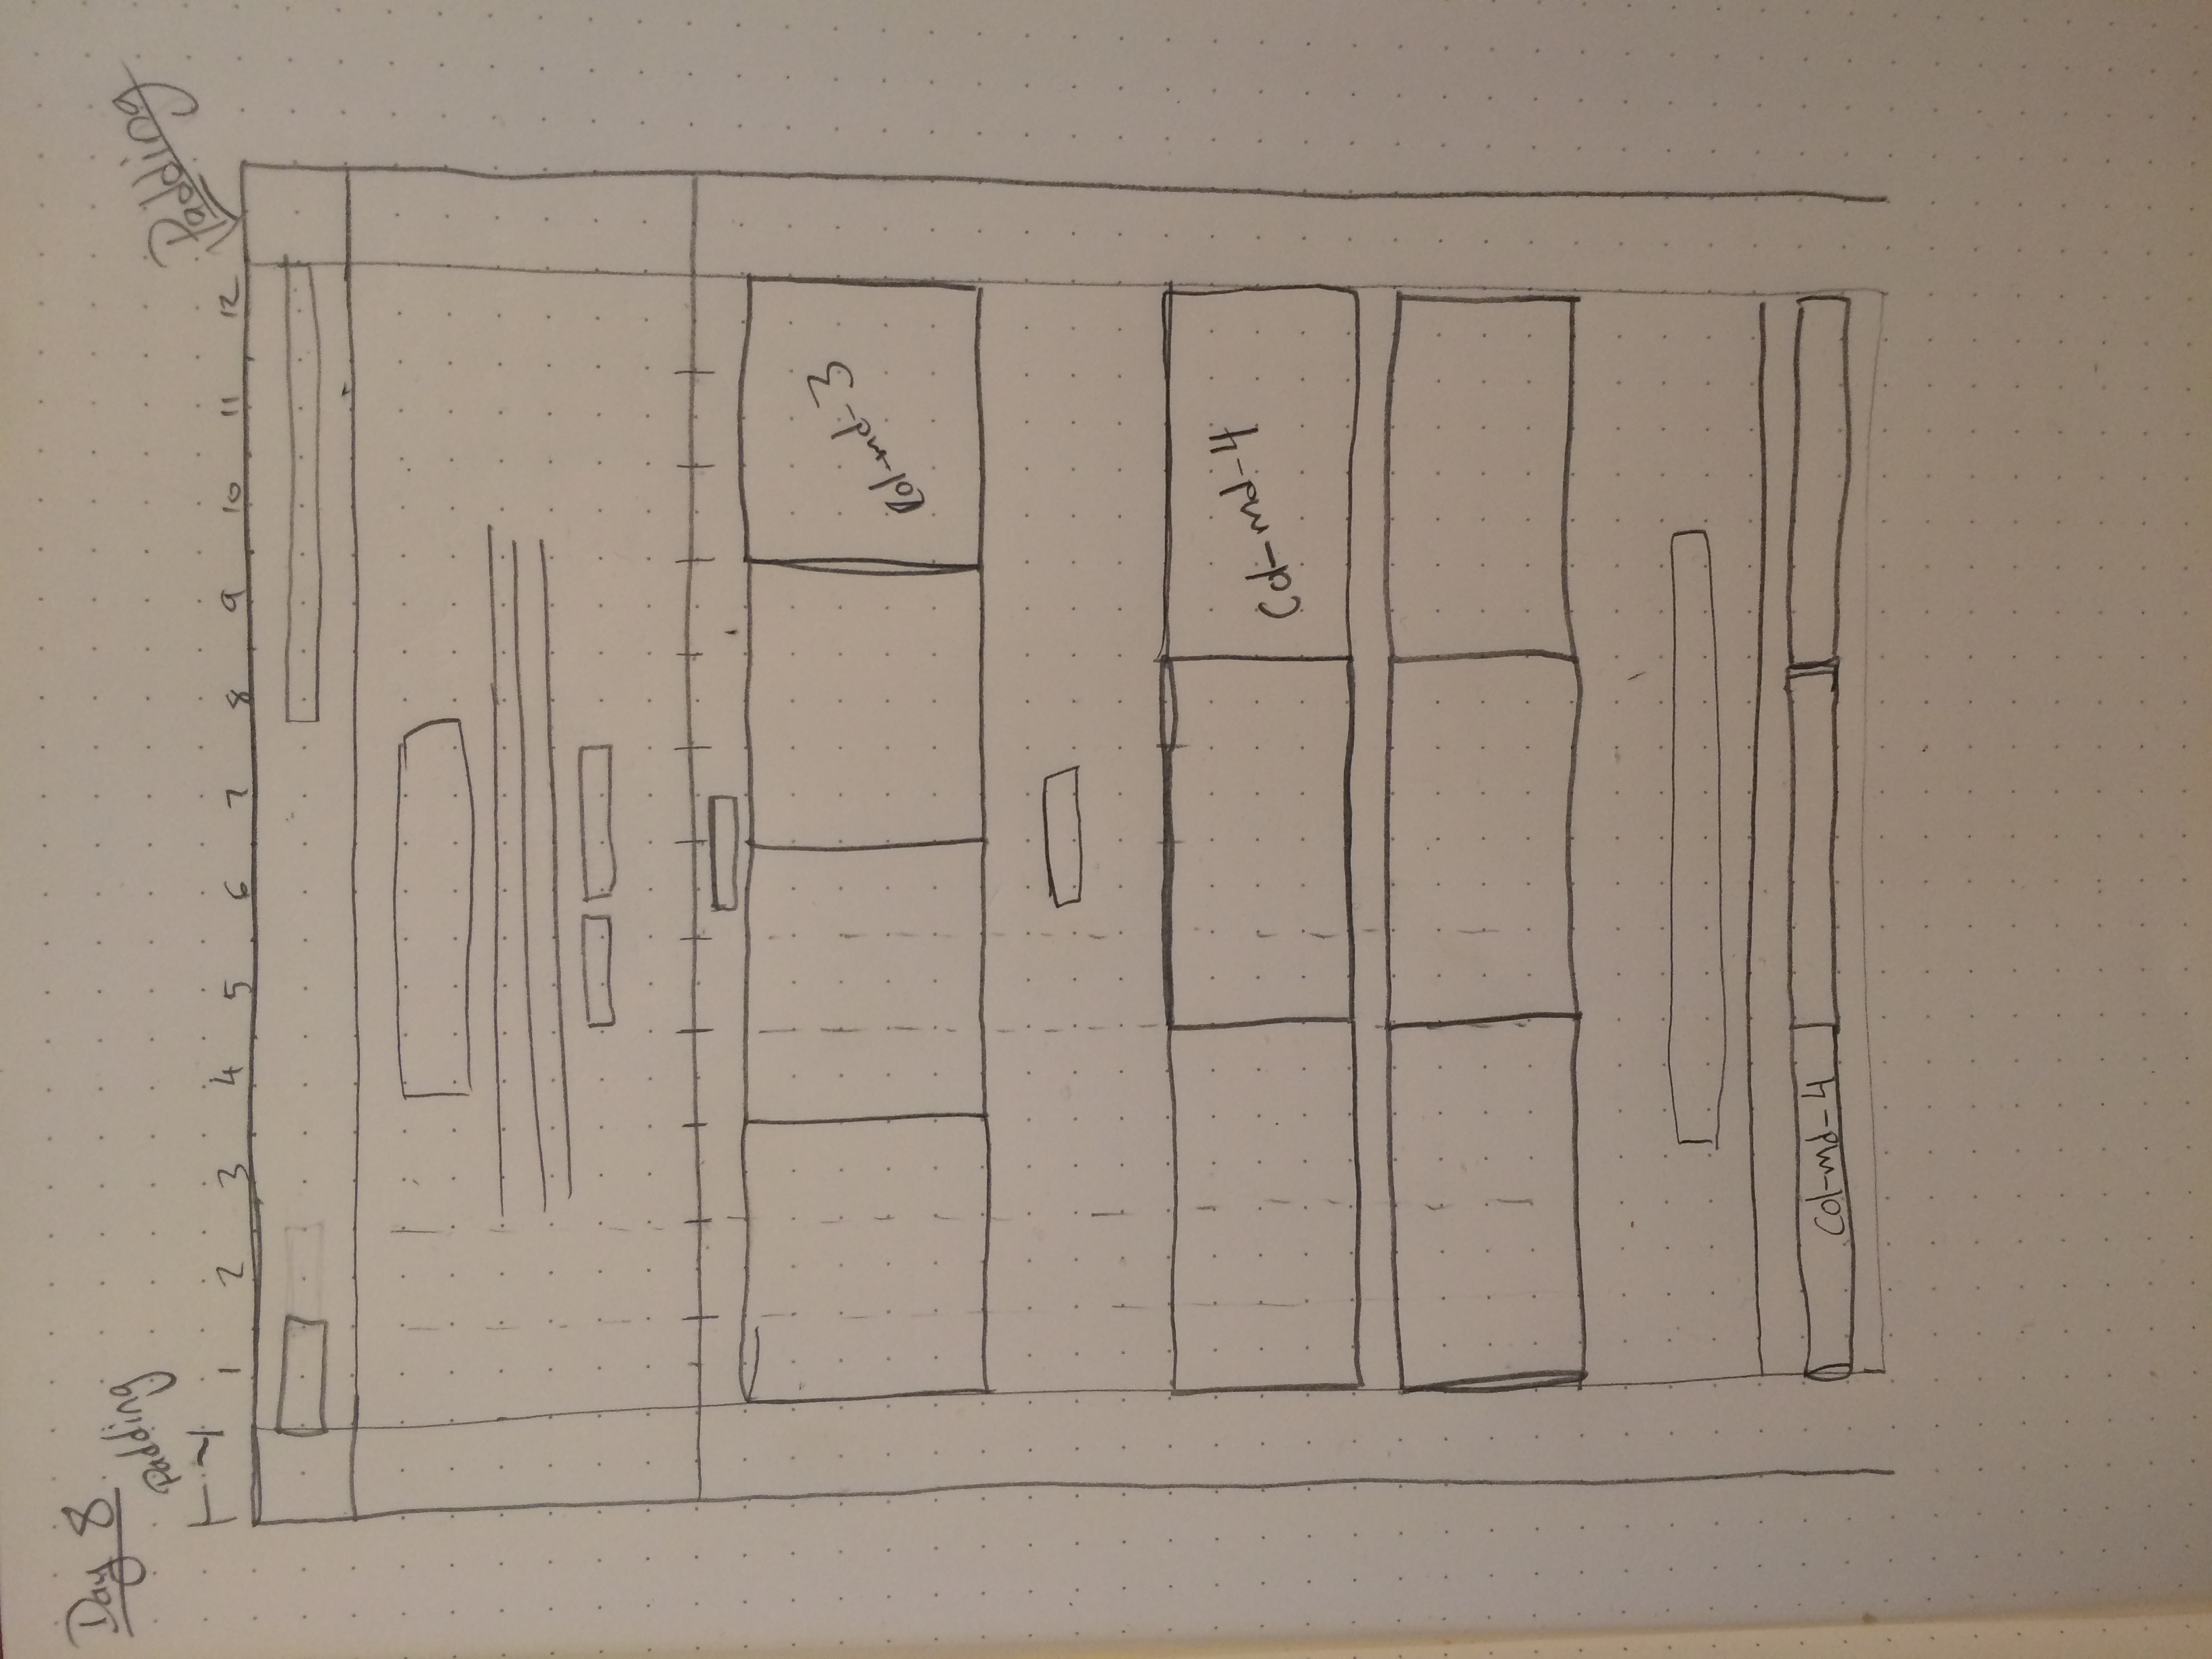 Day 8
Padding
Padding
1 2 3 4 5 6 7 8 9 10 11 12
Col-md-3
Col-md-4
Col-md-4